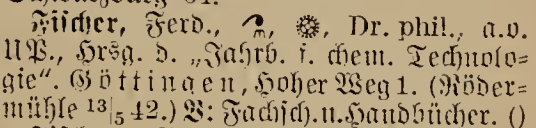 Fischer, Ferd., Dr. phil., a.o.
UP., Hrsg. d. „Jahrb. f. chem. Technolo=
gie". Göttingen, Hoher Weg 1. (Röder=
mühle 13|5 42.) V: Fachsch.u.Handbücher. ()